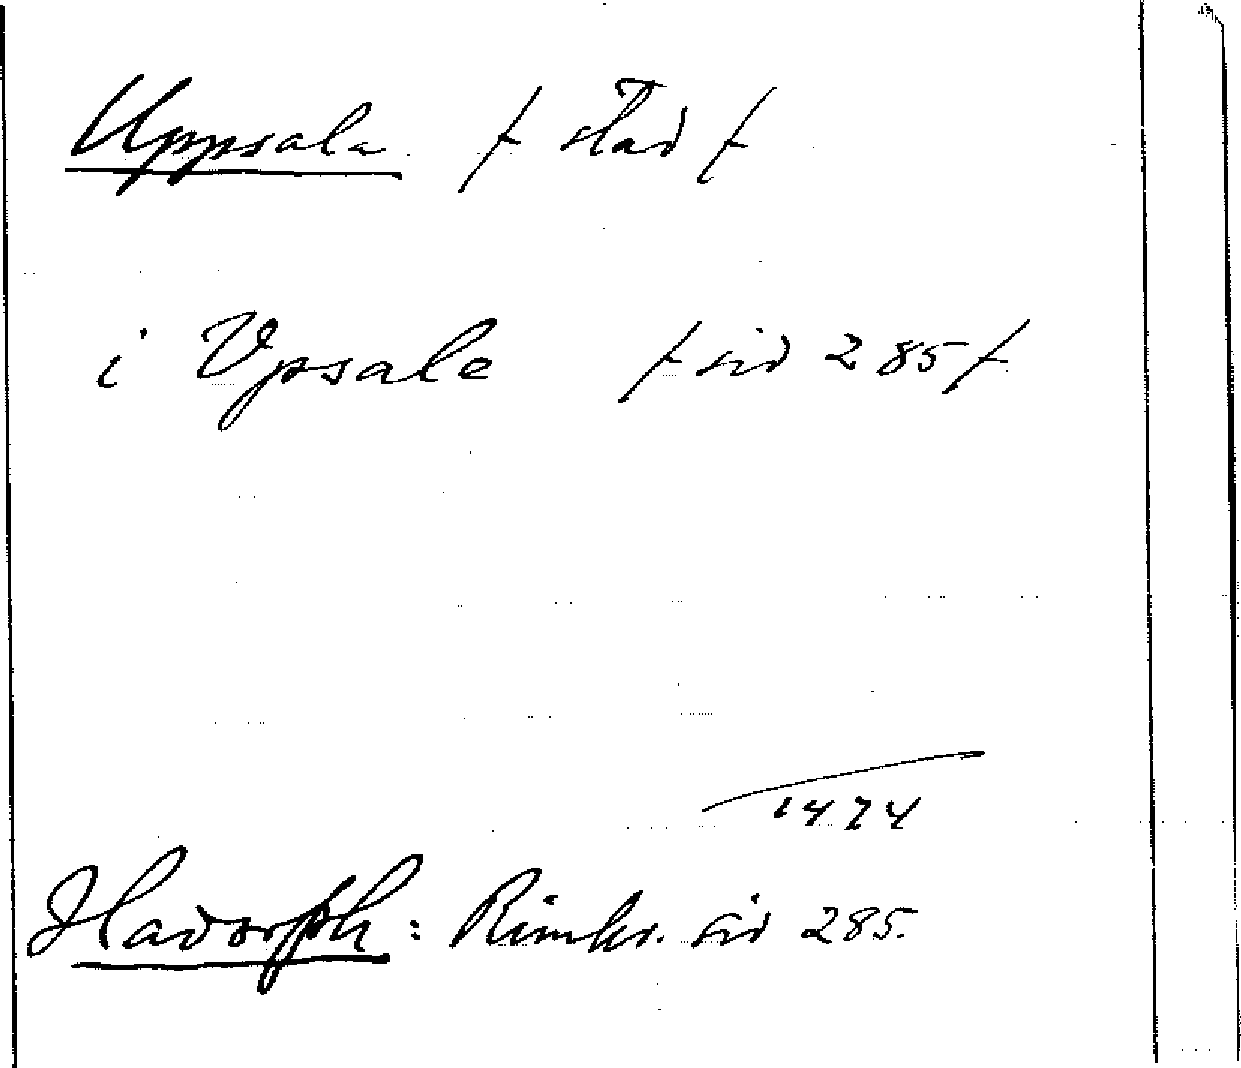 Uppsala /- stad /-
i Vpsale /- sid 285 /-
1474
Hadorph: Rimkr. sid 285.